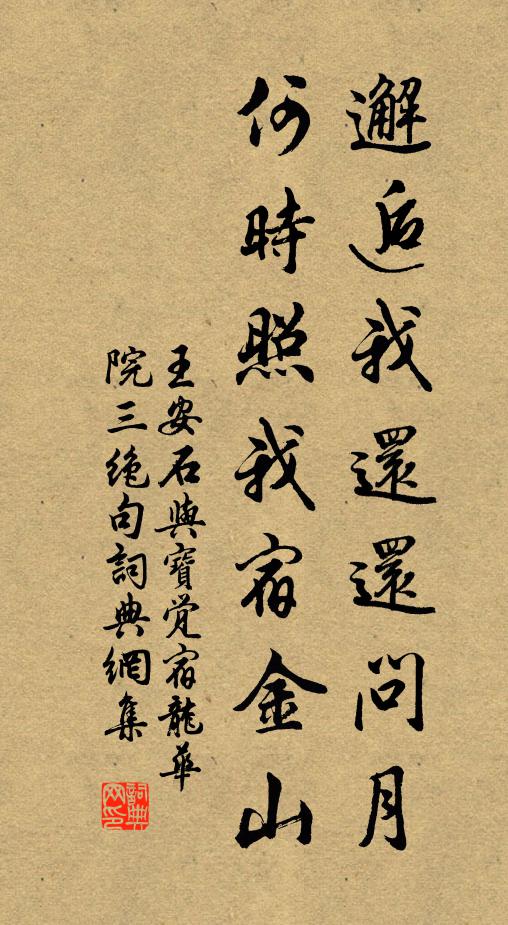 邂逅我還還問月
何時照我宿金山
王安石與寶覚宿龍華
院三絶句詞典網集
詞典
网印